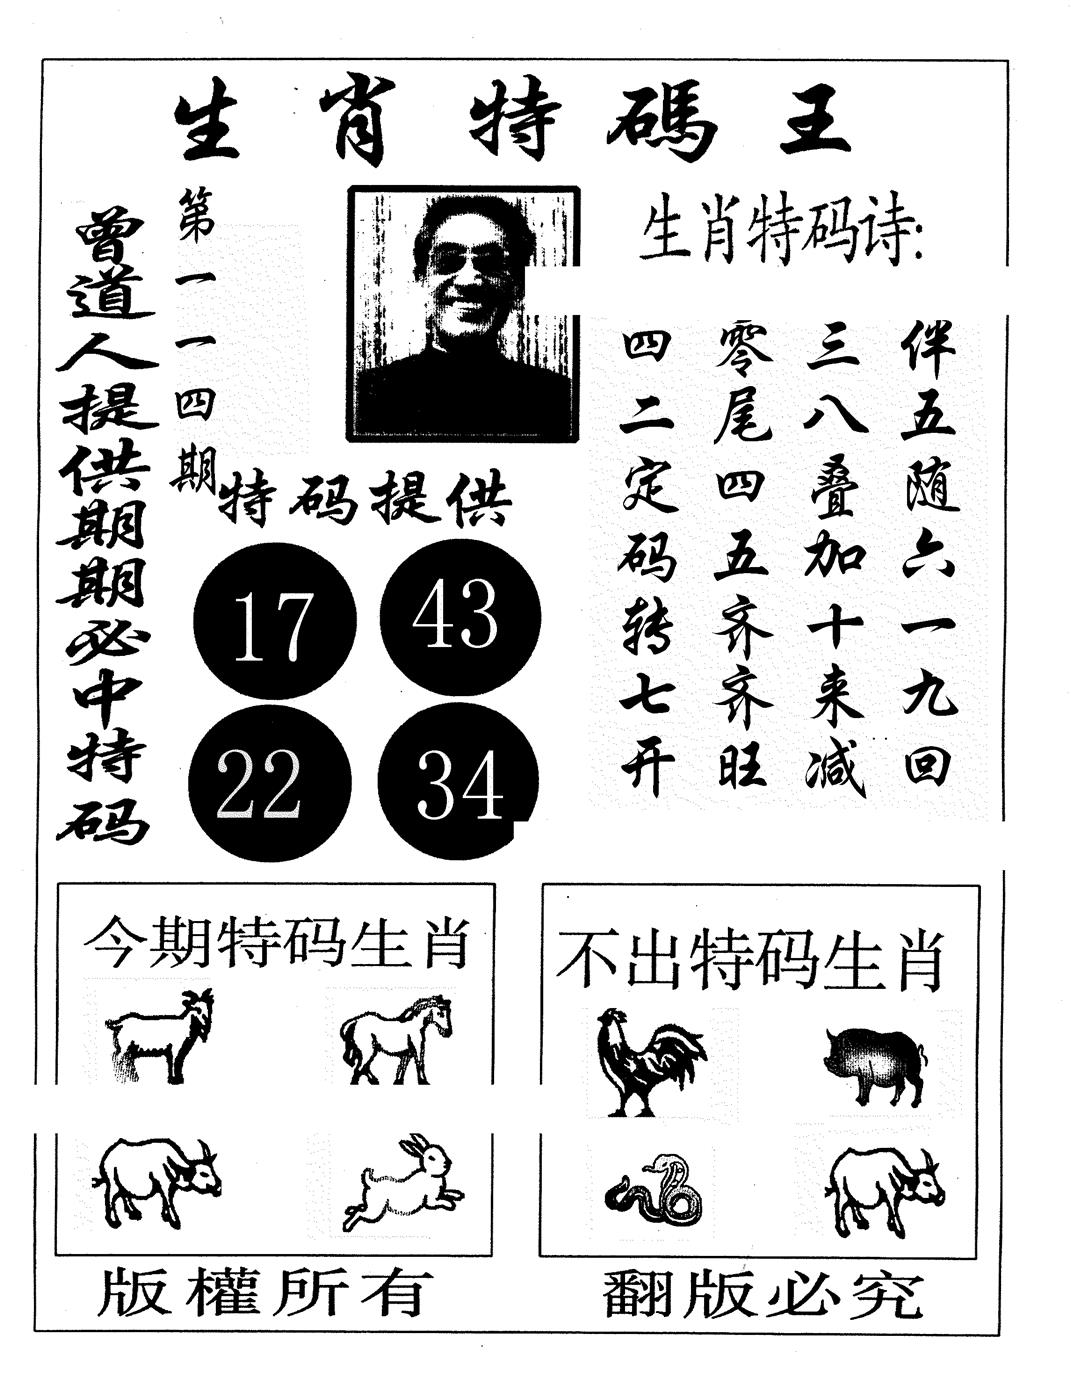 生肖特碼王
曾道人提供期期必中特码
第一一四期
生肖特码诗:
伴五随六一九回
三八叠加十来减
零尾四五齐齐旺
四二定码转七开
特码提供
17 43
22 34
今期特码生肖
不出特码生肖
版權所有
翻版必究